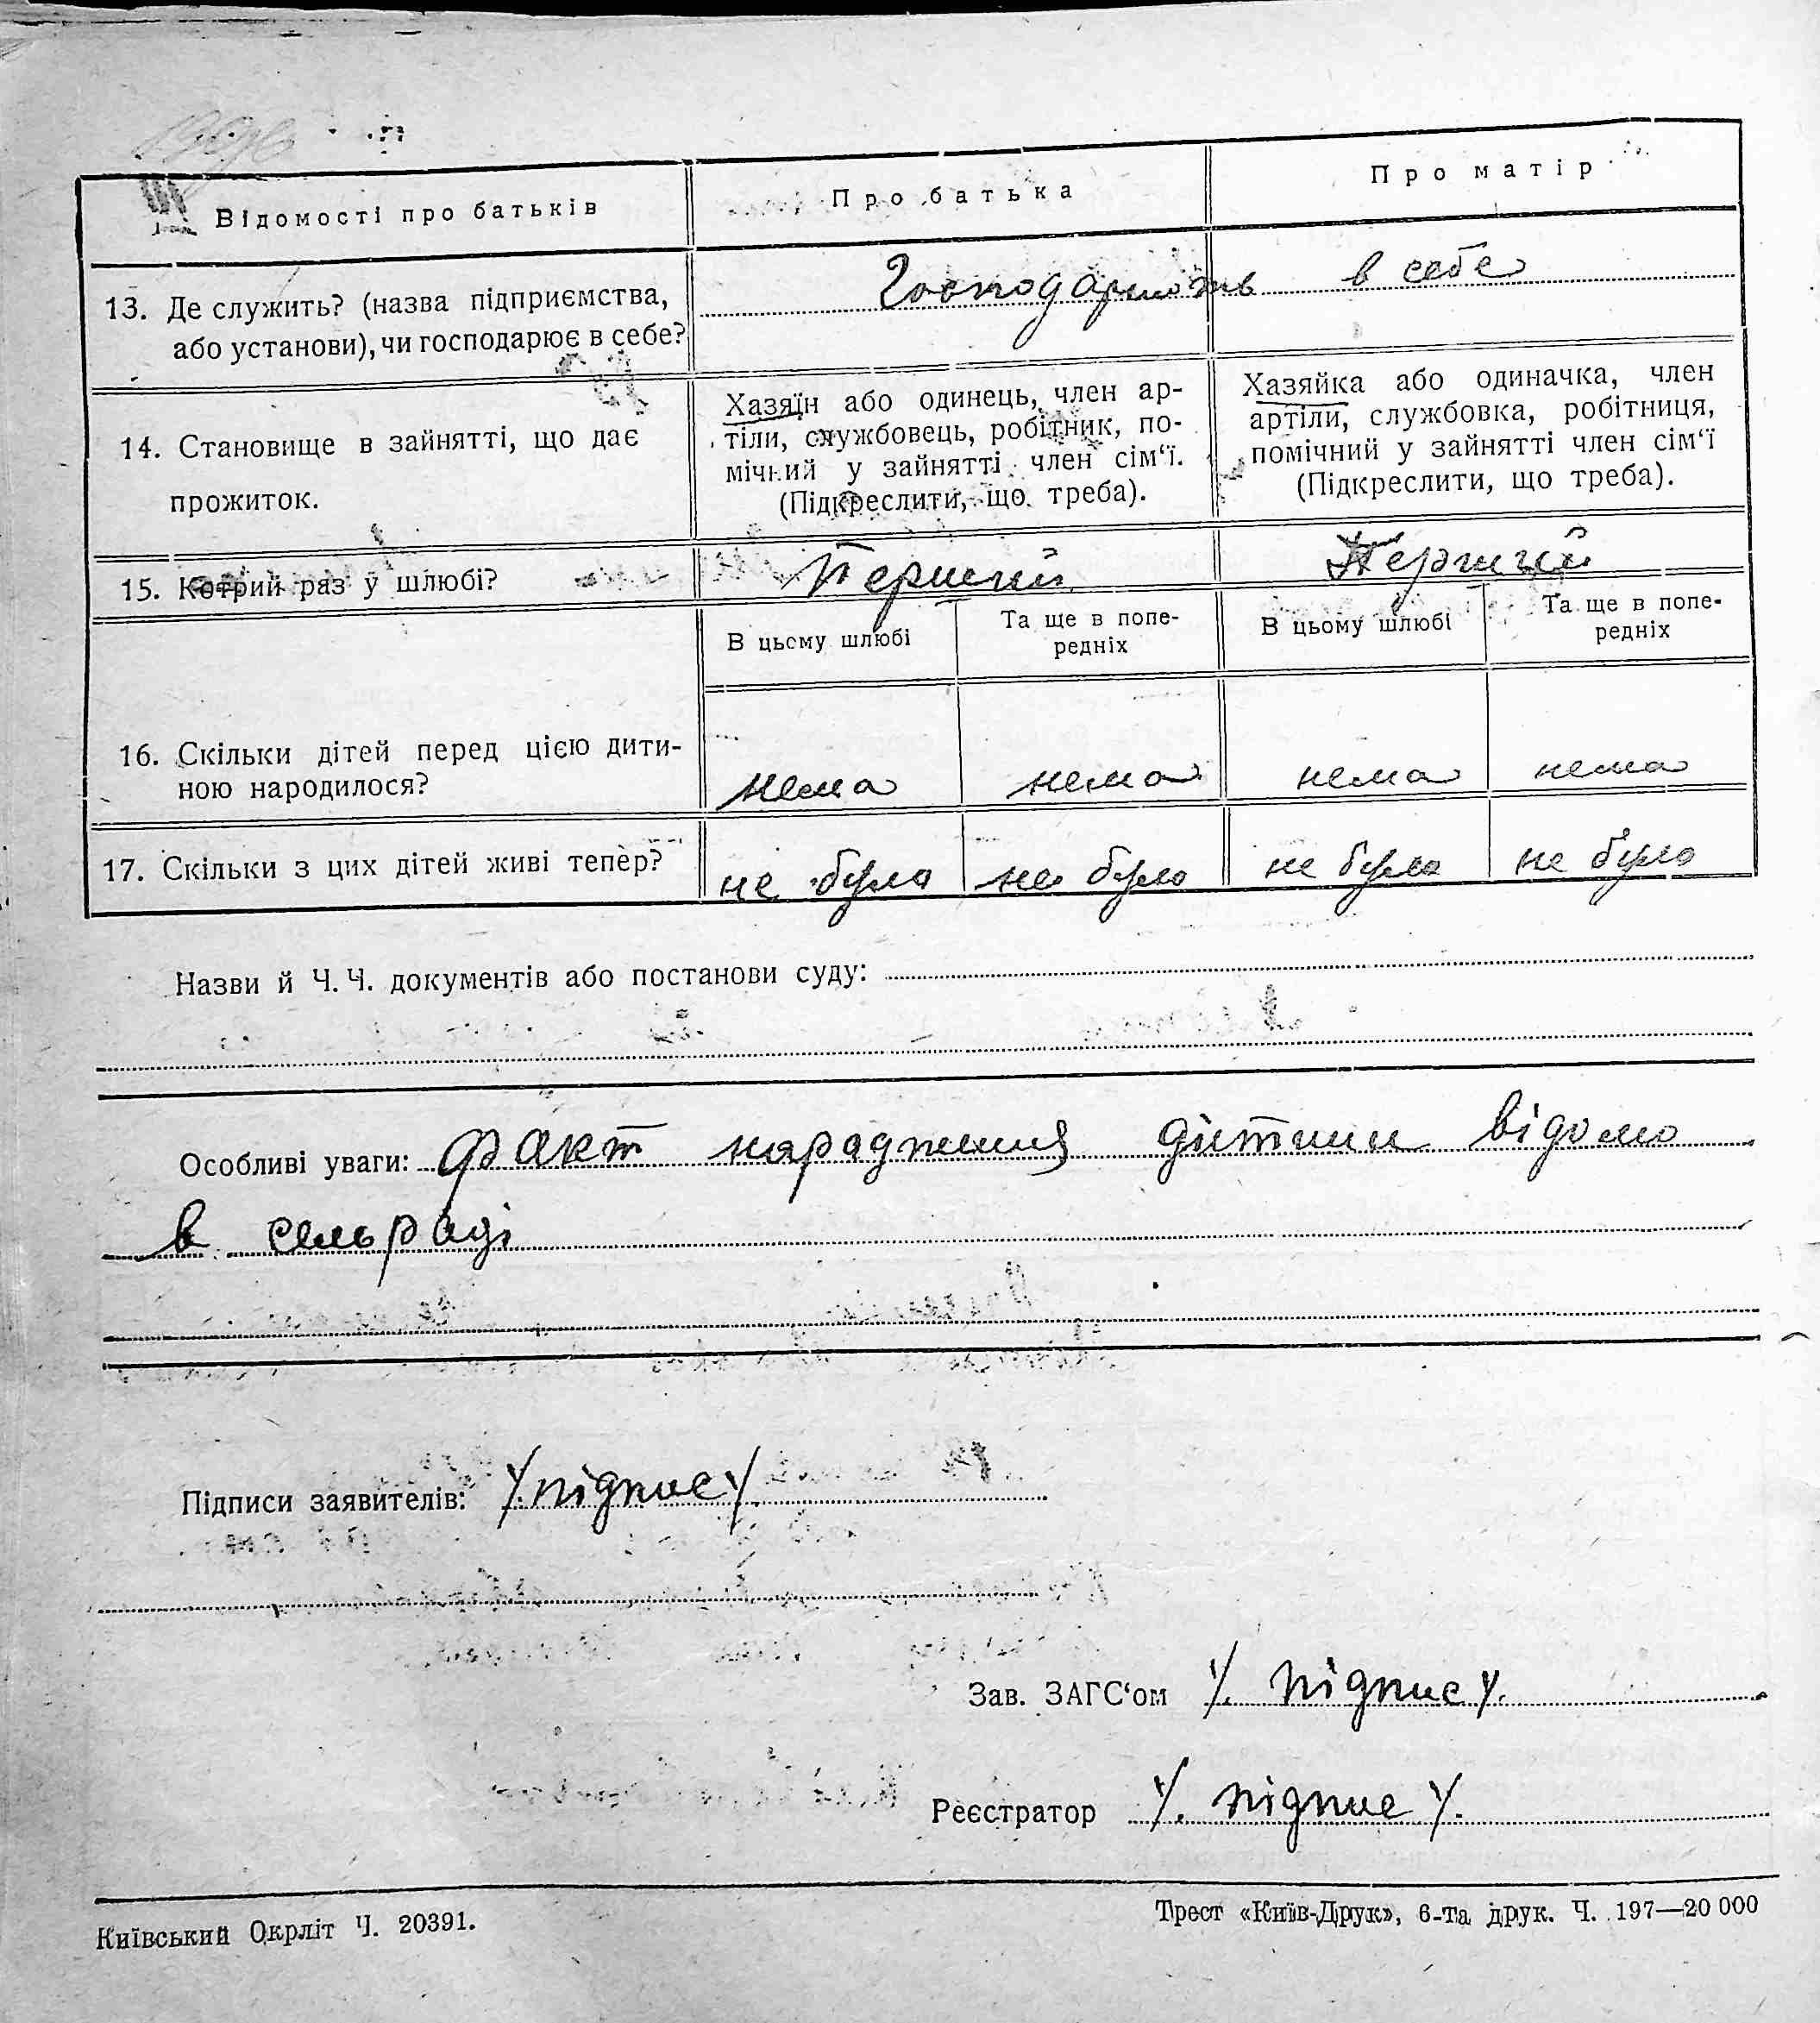 Відомості про батьків
Про батька
Про матір
13. Де служить? (назва підприємства,
або установи), чи господарює в себе?
Господарюють в себе
14. Становище в зайнятті, що дає
прожиток.
Хазяїн або одинець, член ар-
тіли, службовець, робітник, по-
мічний у зайнятті член сім‘ї.
(Підкреслити, що треба).
Хазяйка або одиначка, член
артіли, службовка, робітниця,
помічний у зайнятті член сім‘ї
(Підкреслити, що треба).
15. Котрий раз у шлюбі?
Перший
Перший
В цьому шлюбі
Та ще в попе-
редніх
В цьому шлюбі
Та ще в попе-
редніх
16. Скільки дітей перед цією дити-
ною народилося?
нема нема нема нема
17. Скільки з цих дітей живі тепер?
не було не було не було не було
Назви й Ч. Ч. документів або постанови суду:
Особливі уваги: Факт народження дитини відомо
в сельраді
Підписи заявителів: /підпис/
Зав. ЗАГС‘ом /. підпис/.
Реєстратор /. підпис/.
Київський Окрліт Ч. 20391.
Трест «Київ-Друк», 6-та друк. Ч. 197—20 000